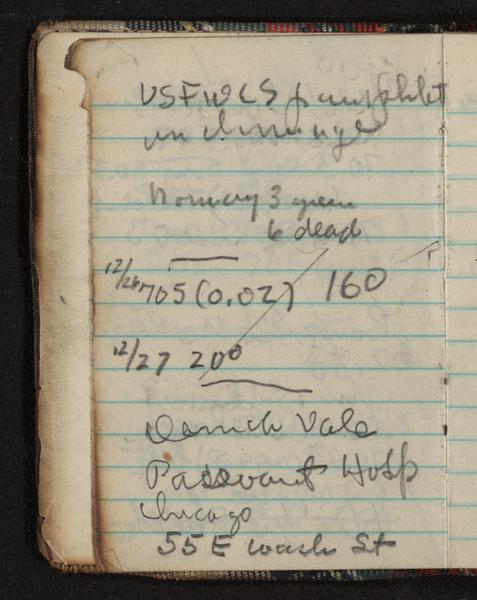 USFWLS pamphlet
on drainage
Norway 3 green
6 dead
12/26 705 (0.02) 160
12/27 200
Vale
Passavant Hosp
Chicago
55 E Wash St